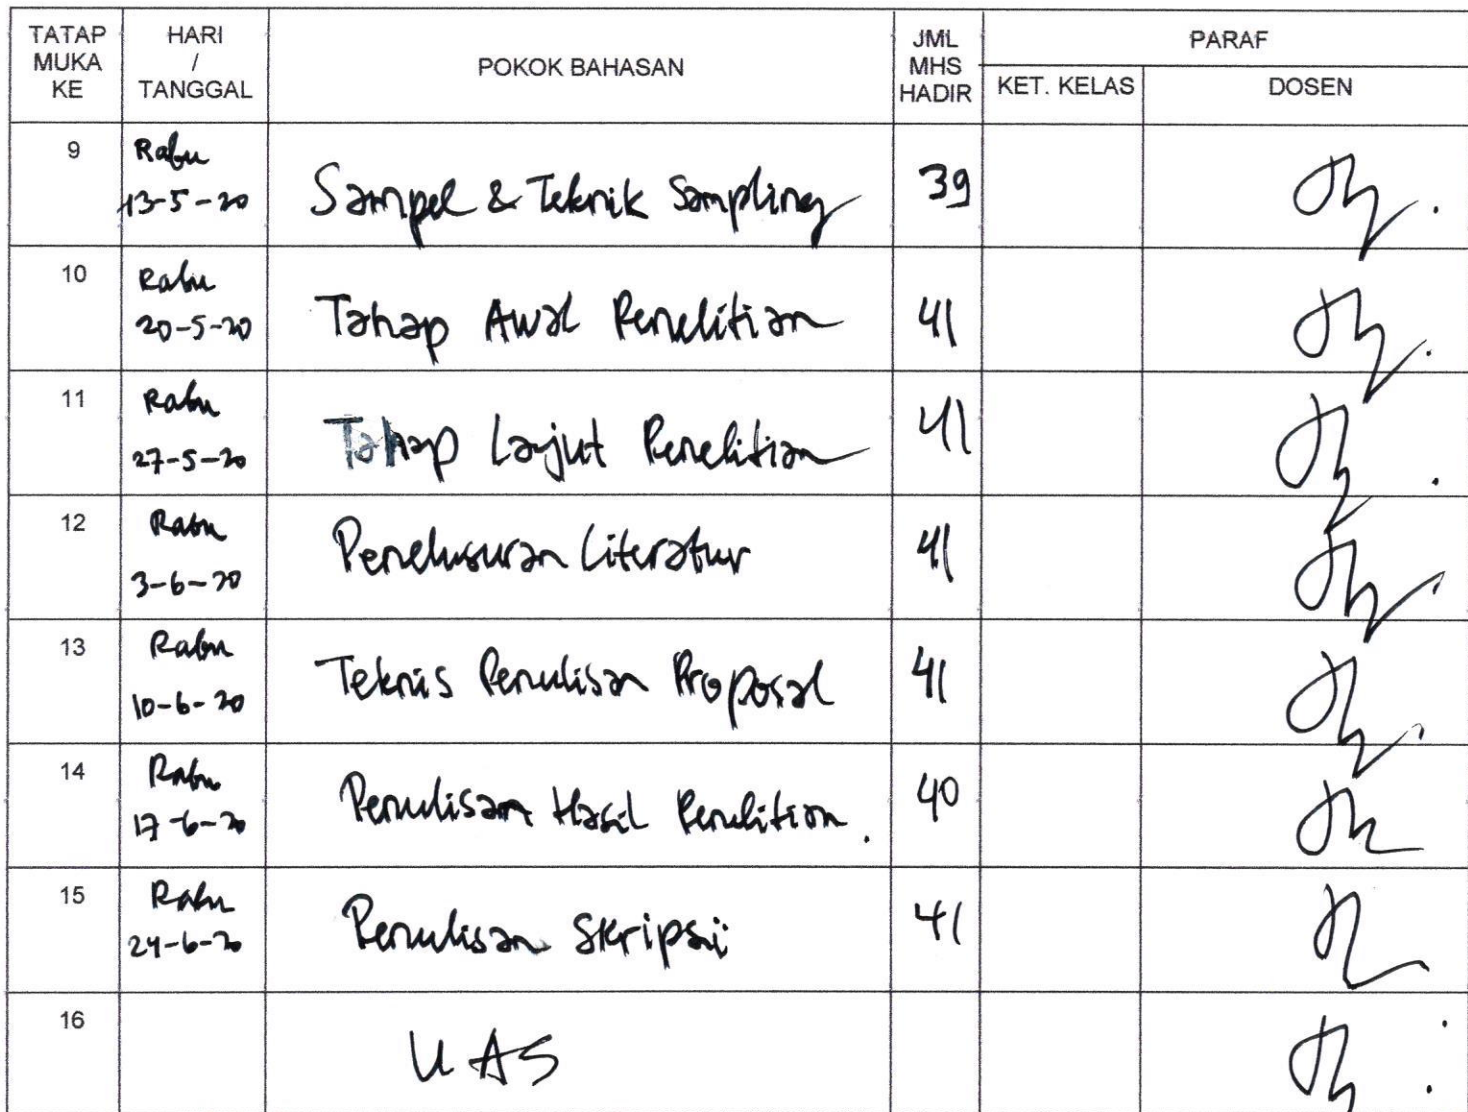 TATAP MUKA KE
HARI / TANGGAL
POKOK BAHASAN
JML MHS HADIR
PARAF
KET. KELAS
DOSEN
9
Rabu
13-5-20
Sampel & Teknik Sampling
39
10
Rabu
20-5-20
Tahap Awal Penelitian
41
11
Rabu
27-5-20
Tahap Lanjut Penelitian
41
12
Rabu
3-6-20
Penelusuran Literatur
41
13
Rabu
10-6-20
Teknis Penulisan Proposal
41
14
Rabu
17-6-20
Penulisan Hasil Penelitian.
40
15
Rabu
24-6-20
Penulisan Skripsi
41
16
UAS